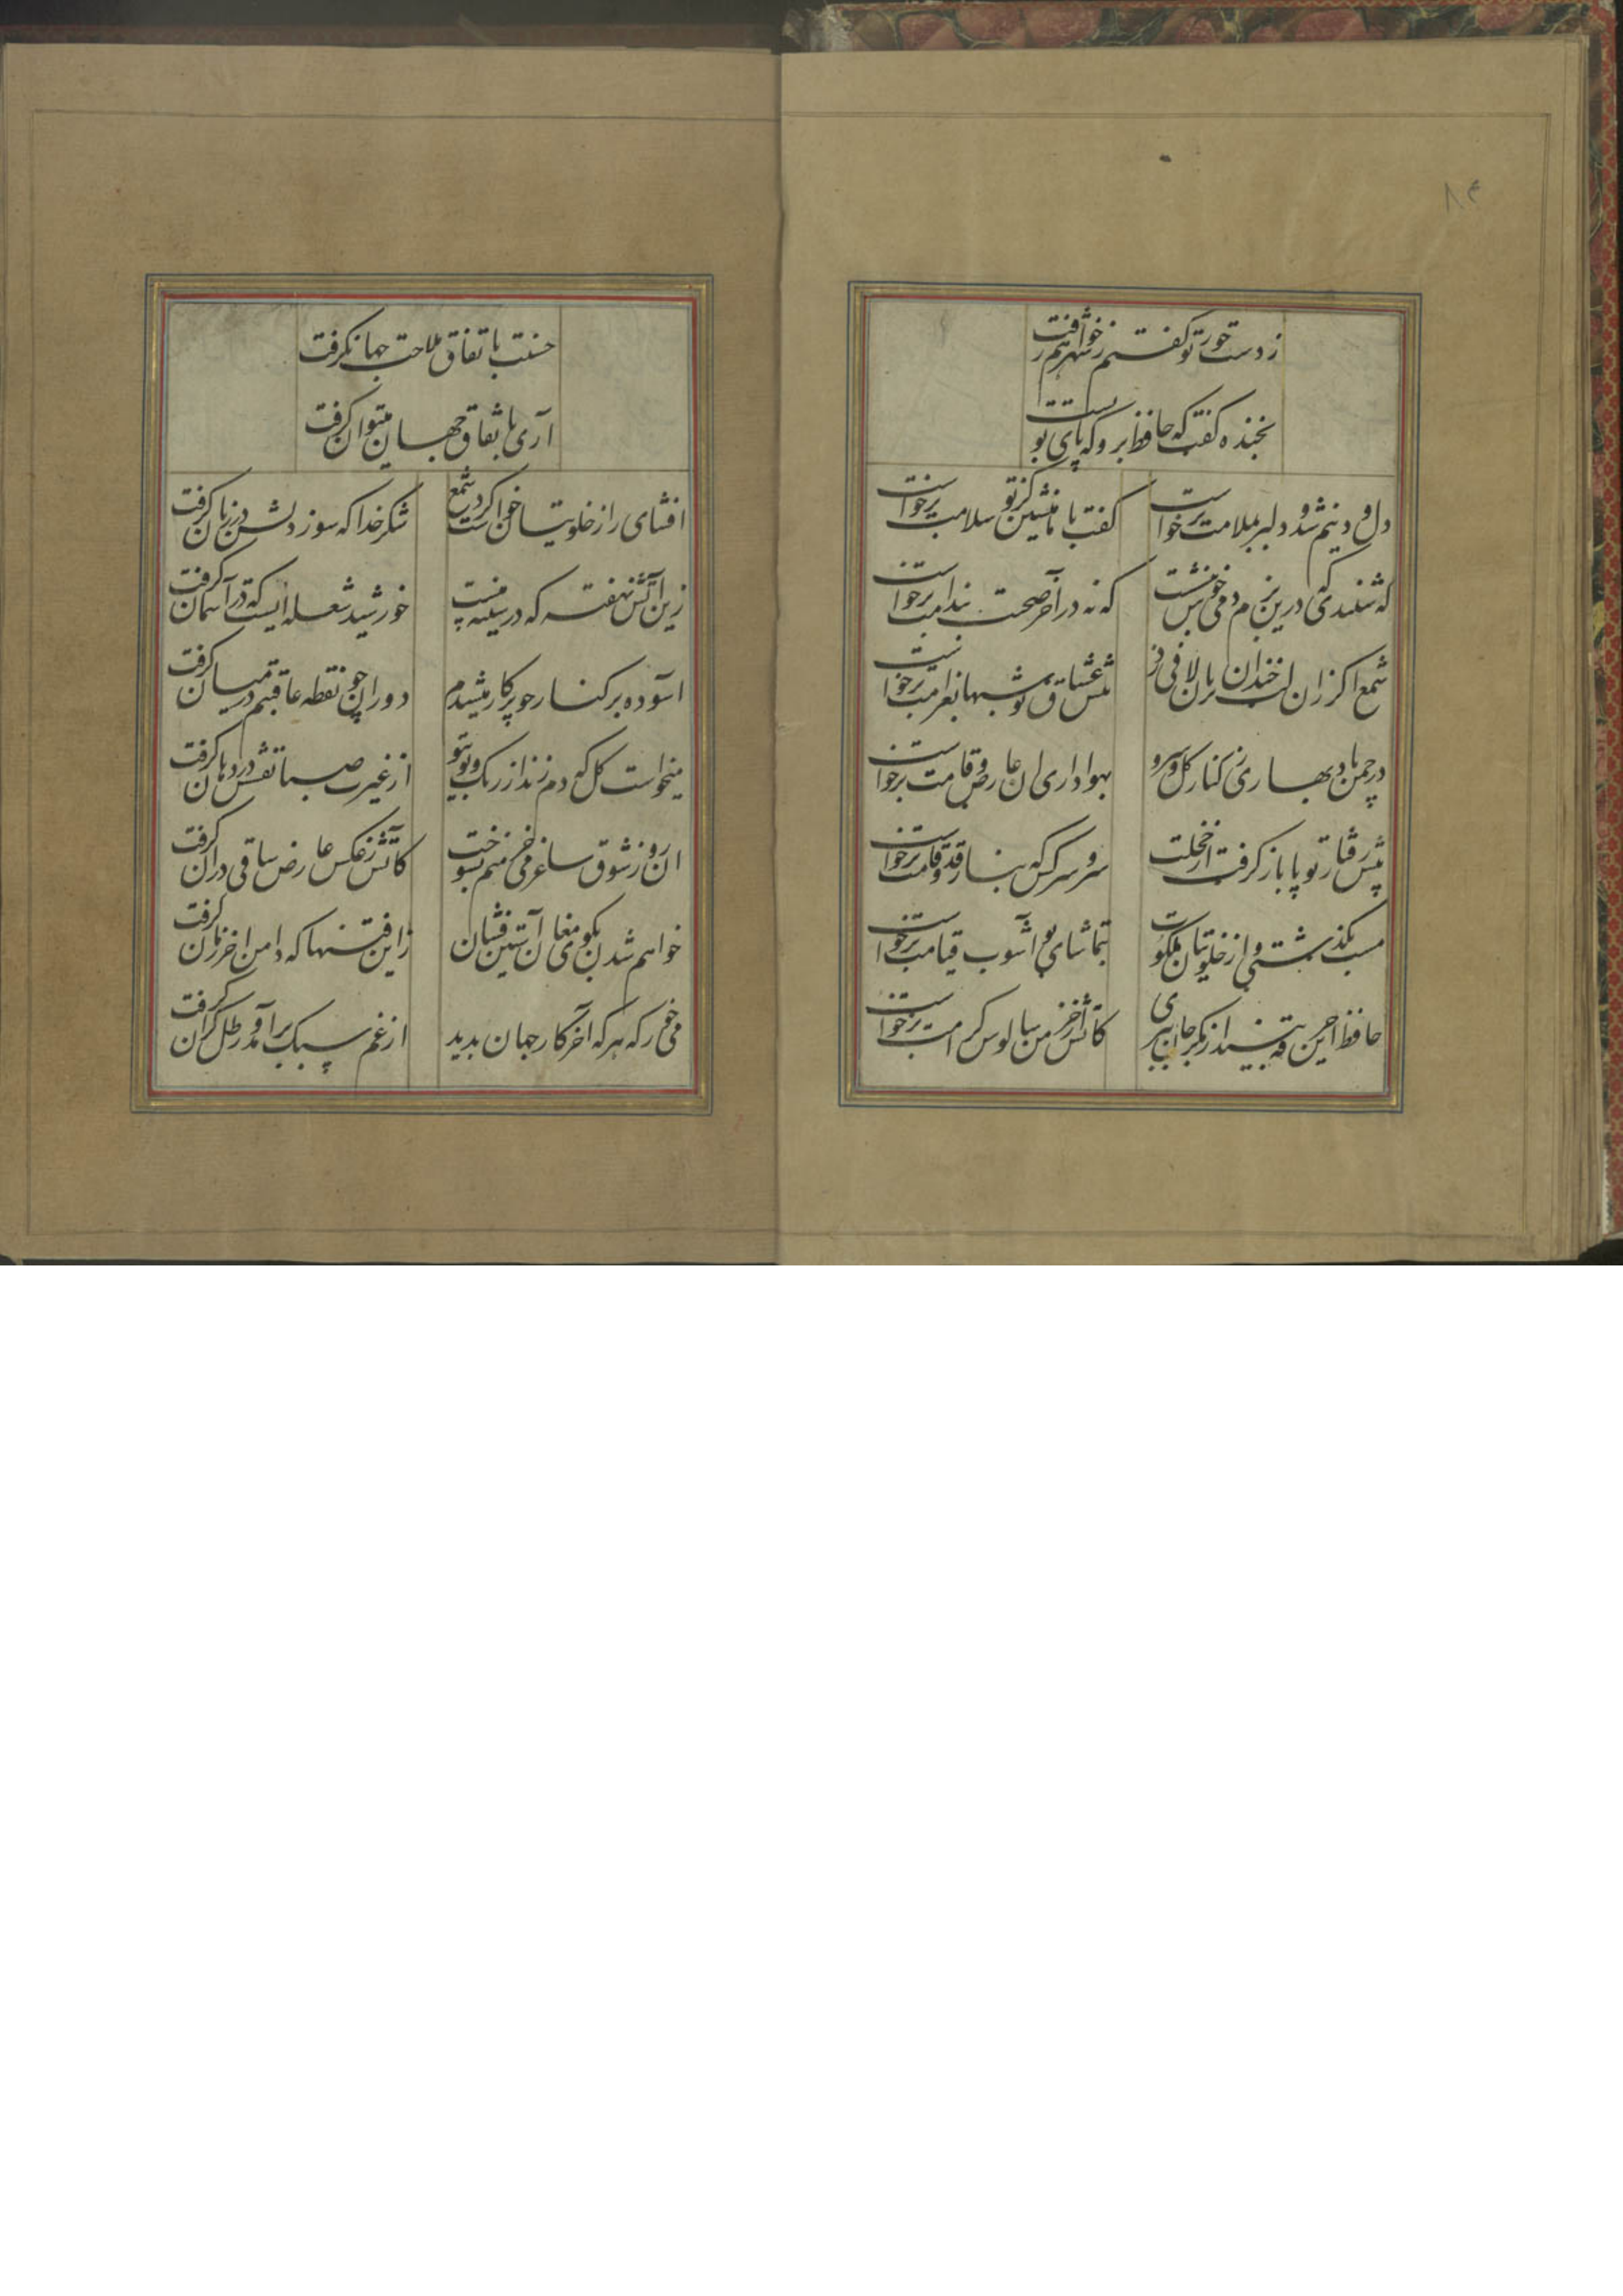 ۸۴
ز دست جور تو گفتم ز شهر خواهم رفت
بخنده گفت که حافظ برو که پای تو بست
دل و دینم شد و دلبر بملامت برخواست
گفت با ما منشین کز تو سلامت برخواست
که شنیدی که درین بزم دمی خوش بنشست
که نه در آخر صحبت بندامت برخواست
شمع اگر زان لب خندان بزبان لافی زد
پیش عشاق تو شبها بغرامت برخواست
در چمن باد بهاری ز کنار گل و سرو
بهواداری ان عارض و قامت برخواست
پیش رفتار تو پا باز گرفت از خجلت
سرو سرکش که بناز قد و قامت برخواست
مست بگذشتی و از خلوتیان ملکوت
بتماشای تو آشوب قیامت برخواست
حافظ این خرقه بینداز مگر جان ببری
کاتش از خرمن سالوس کرامت برخواست
حسنت باتفاق ملاحت جهان گرفت
آری باتفاق جهان میتوان گرفت
افشای راز خلوتیان خواست کرد شمع
شکر خدا که سوز دلش در زبان گرفت
زین آتش نهفته که در سینه منست
خورشید شعله ایست که در آسمان گرفت
اسوده بر کنار چو پرکار میشدم
دوران چو نقطه عاقبتم در میان گرفت
میخواست گل که دم زند از رنگ و بوی تو
از غیرت صبا نفسش در دهان گرفت
ان روز شوق ساغر می خرمنم بسوخت
کاتش ز عکس عارض ساقی دران گرفت
خواهم شدن بکوی مغان آستین فشان
زاین فتنها که دامن اخر زمان گرفت
می خور که هر که آخر کار جهان بدید
از غم سبک برآمد و رطل گران گرفت